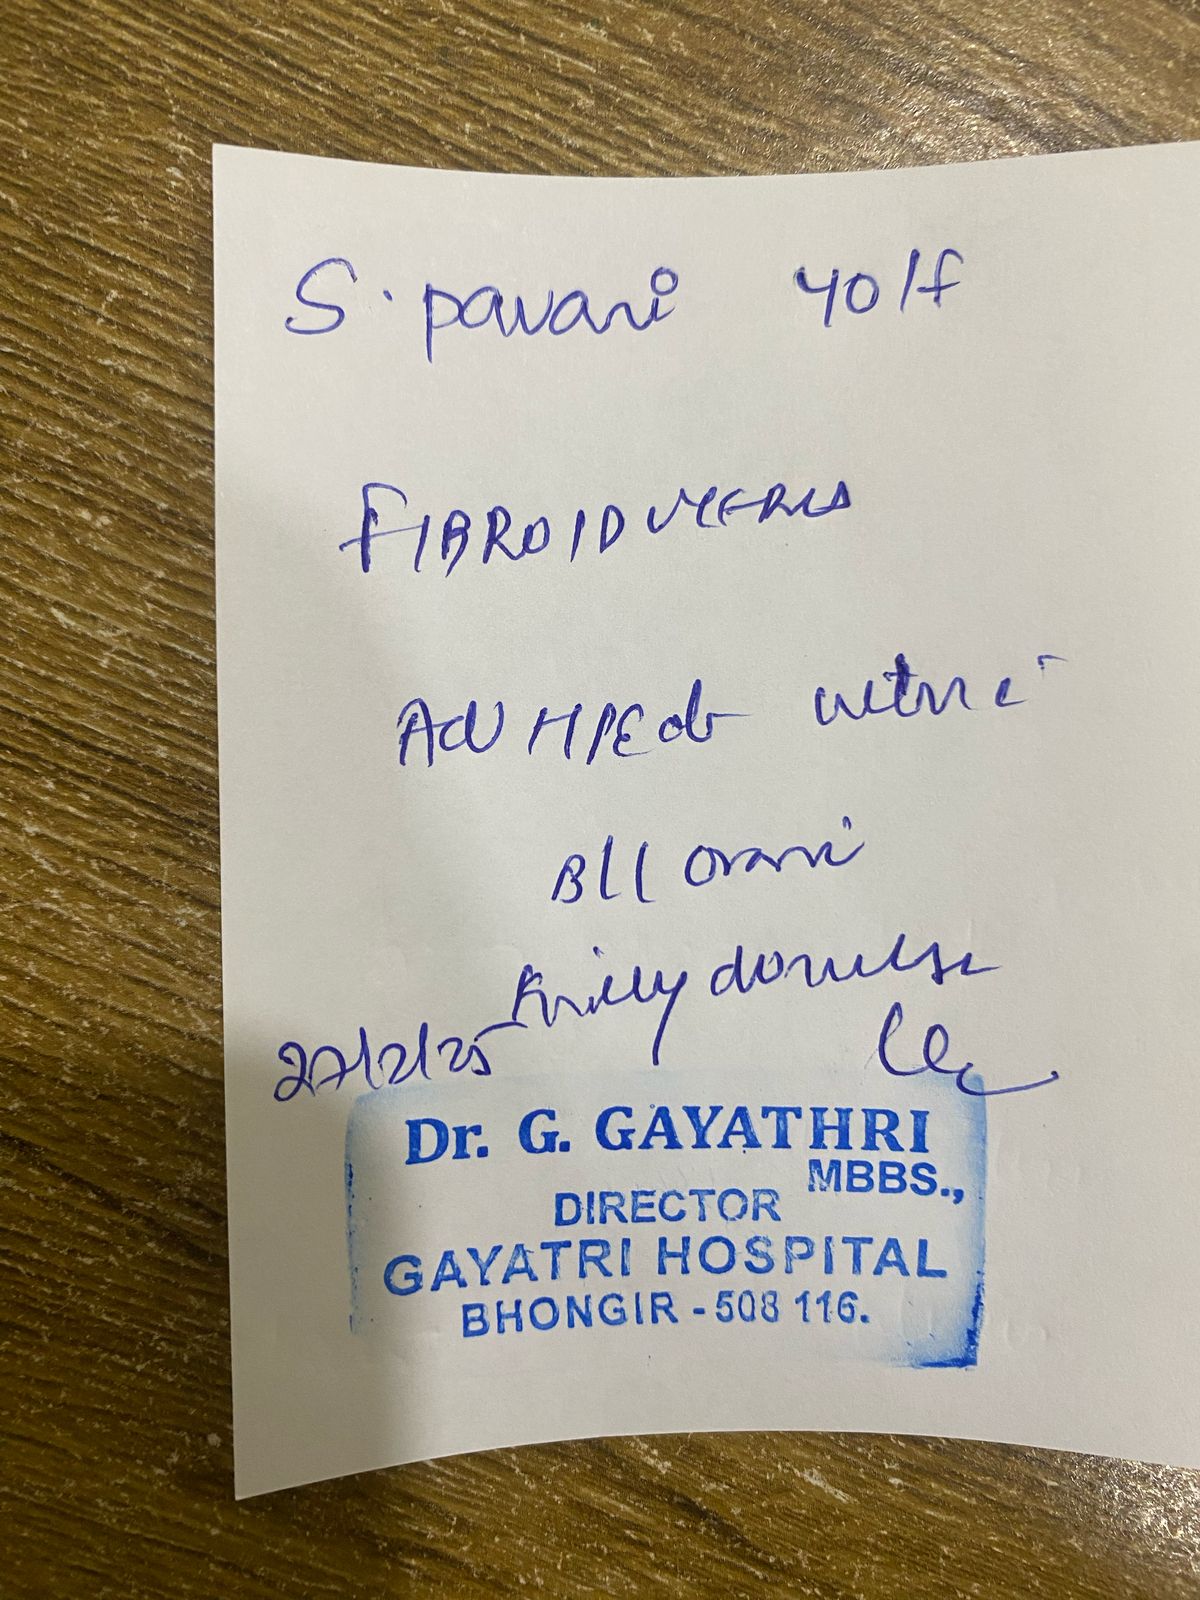 S. pavani 40/f
FIBROID UTERUS
Adv HPE of uterus
B/L ovari
Kindly do needful
27/2/25
Dr. G. GAYATHRI
MBBS.,
DIRECTOR
GAYATRI HOSPITAL
BHONGIR - 508 116.